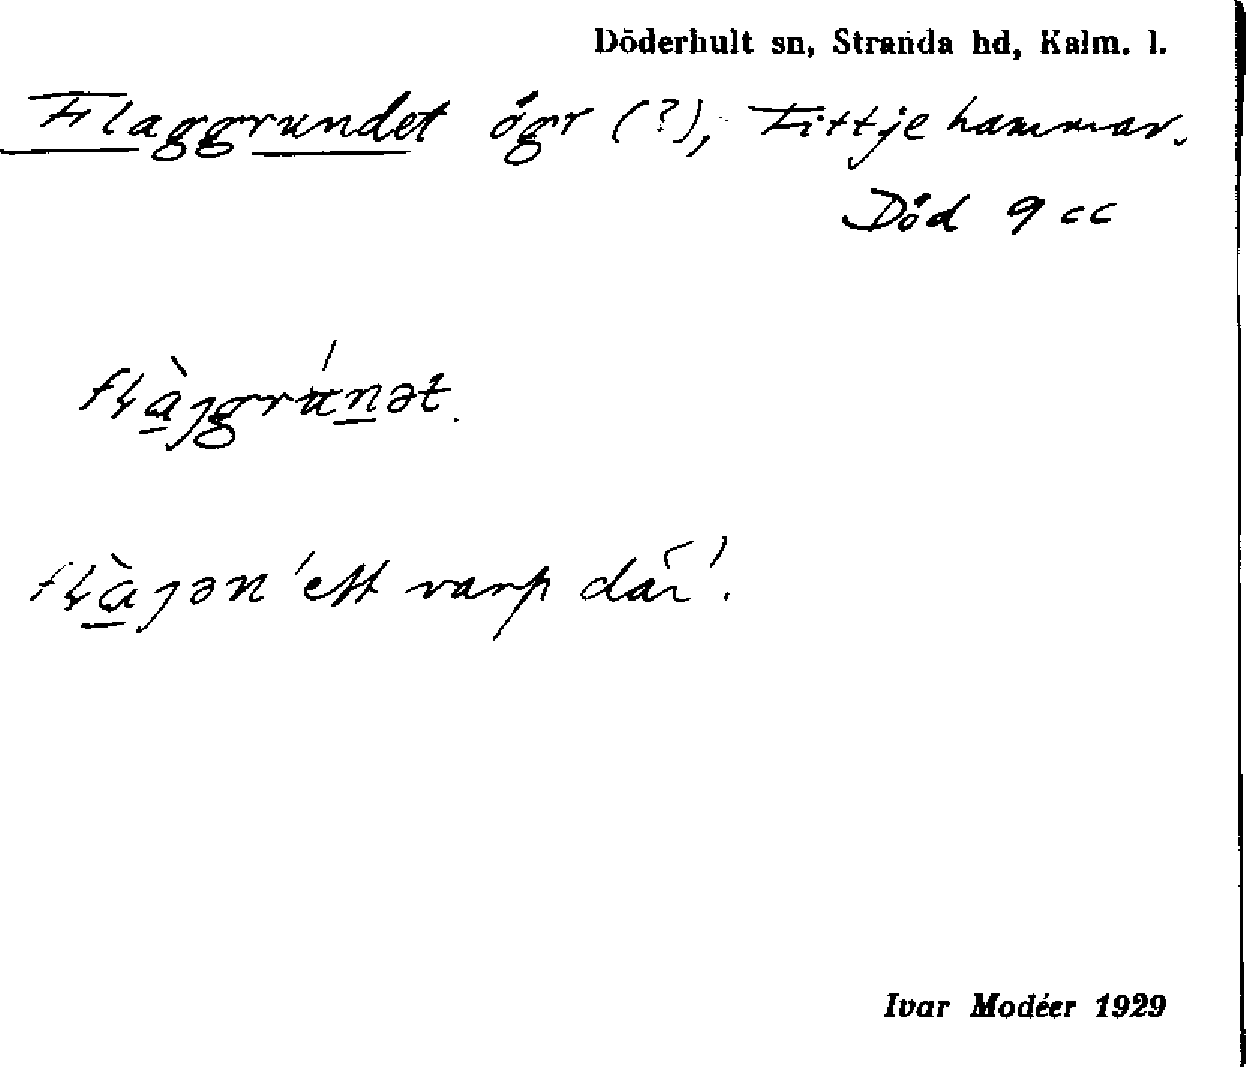 Döderhult sn, Stranda hd, Kalm. l.
Flaggrundet ögr (?), Fittjehammar.
Död 9 cc
'ett varp där'.
Ivar Modéer 1929